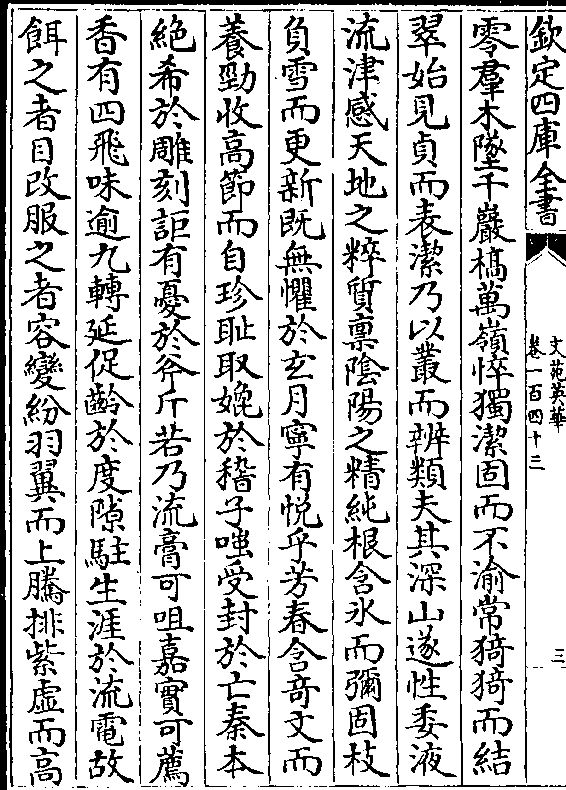 欽定四庫全書
文苑英華
卷一百四十三
三
零羣木墜千巖槁萬嶺悴獨潔固而不渝常猗猗而結
翠始見貞而表潔乃以叢而辨類夫其深山遂性委液
流津感天地之粹質禀陰陽之精純根含氷而彌固枝
負雪而更新既無懼於玄月寧有悦乎芳春含竒文而
養勁收高節而自珍耻取媲於稽子嗤受封於亡秦本
絶希於雕刻詎有憂於斧斤若乃流膏可咀嘉實可薦
香有四飛味逾九轉延促齡於度隙駐生涯於流電故
餌之者目改服之者容變紛羽翼而上騰排紫虚而高